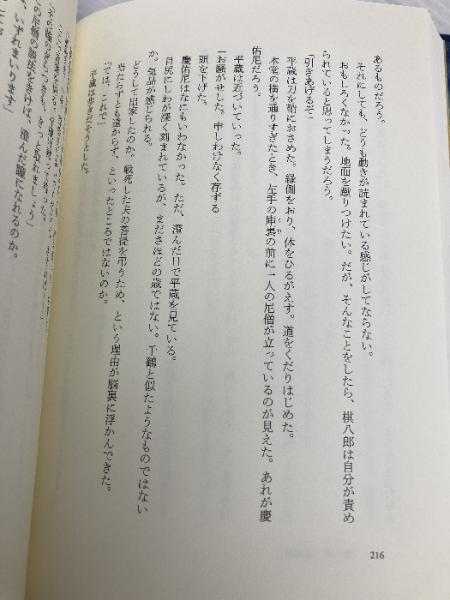 あるものだろう。
それにしても、どうも動きが読まれている感じがしてならない。
おもしろくなかった。地面を蹴りつけたい。だが、そんなことをしたら、棋八郎は自分が責め
られていると思ってしまうだろう。
「引きあげるぞ」
平蔵は刀を鞘におさめた。縁側をおり、体をひるがえす。道をくだりはじめた。
本堂の横を通りすぎたとき、左手の庫裏の前に一人の尼僧が立っているのが見えた。あれが慶
佑尼だろう。
平蔵は近づいていった。
「お騒がせした。申しわけなく存ずる」
頭を下げた。
慶佑尼はなにもいわなかった。ただ、澄んだ目で平蔵を見ている。
目尻にしわが深く刻まれているが、まださほどの歳ではない。千鶴と似たようなものではない
か。気品が感じられる。
どうして出家したのか。戦死した夫の菩提を弔うため、という理由が脳裏に浮かんできた。
当たらずとも遠からず、といったところではないのか。
「では、これで」
平蔵は歩きだそうとした。
216
いずれまいります」
の尼僧の御法をきけば、澄んだ瞳になれるのか。